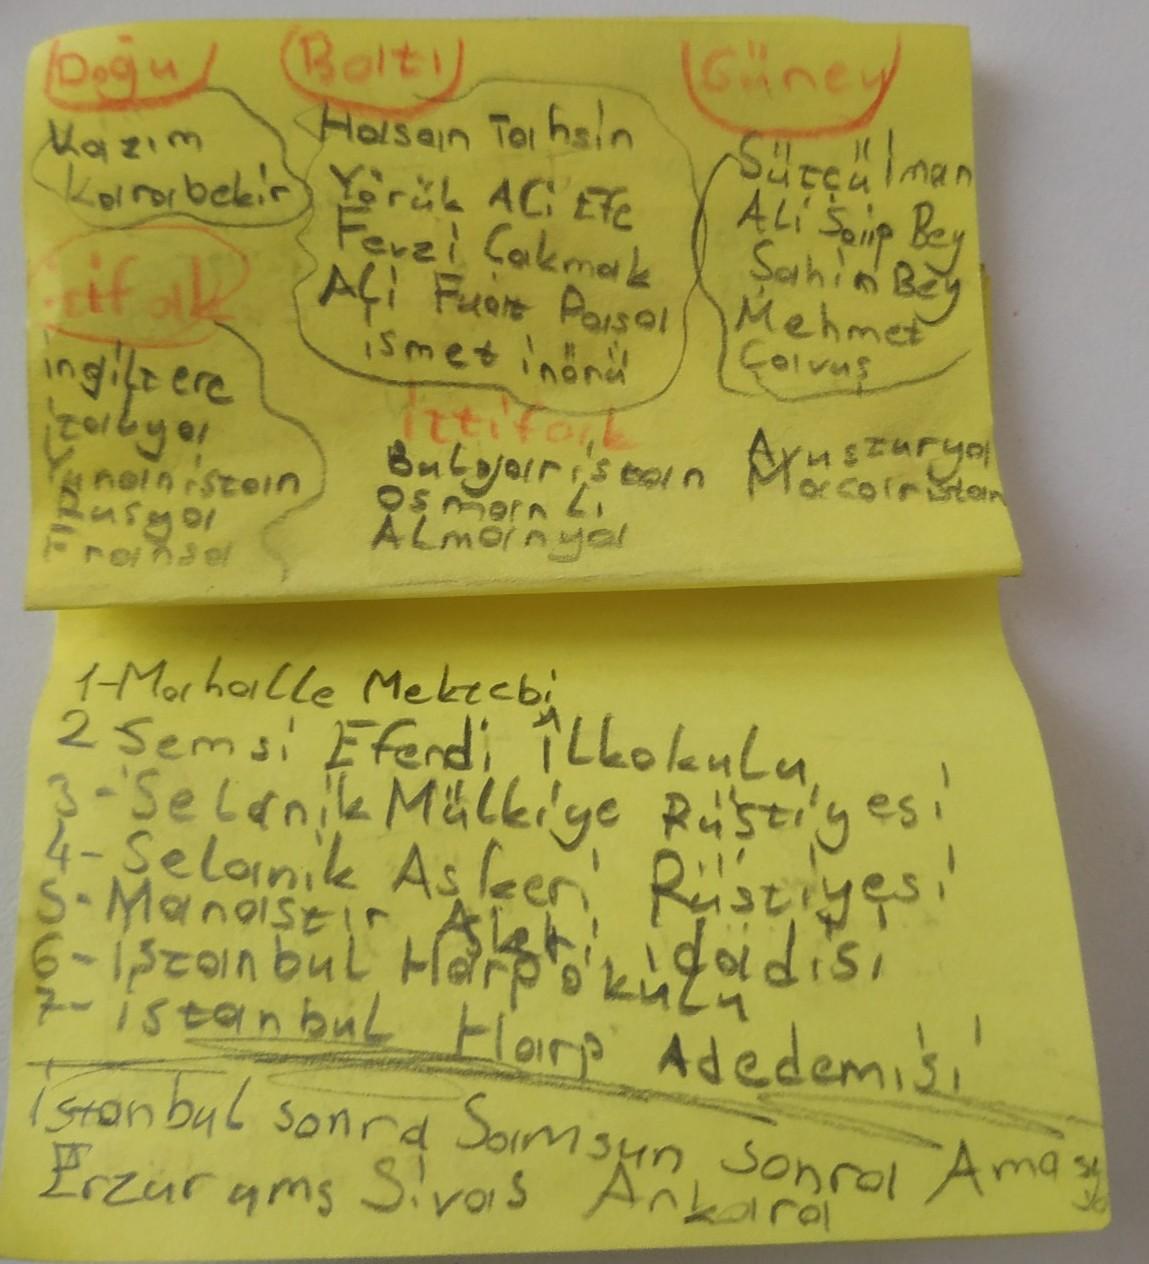 Doğu
Kazım
Karabekir
Batı
Hasan Tahsin
Yörük Ali Efe
Fevzi Çakmak
Ali Fuat Paşa
ismet inönü
Güney
Sütçü İman
Ali Saip Bey
Şahin Bey
Mehmet
Çavuş
itifak
ingiltere
italya
Yunanistan
Rusya
Fransa
ittifak
Bulgaristan
Osmanlı
Almanya
Avusturya
Macaristan
1-Mahalle Mektebi
2 Şemsi Efendi İlkokulu
3-Selanik Mülkiye Rüştiyesi
4-Selanik Askeri Rüştiyesi
5-Manastır Askeri idadisi
6-İstanbul Harp okulu
7-istanbul Harp Adedemisi
istanbul sonra Samsun sonra Amasya
Sivas Ankara